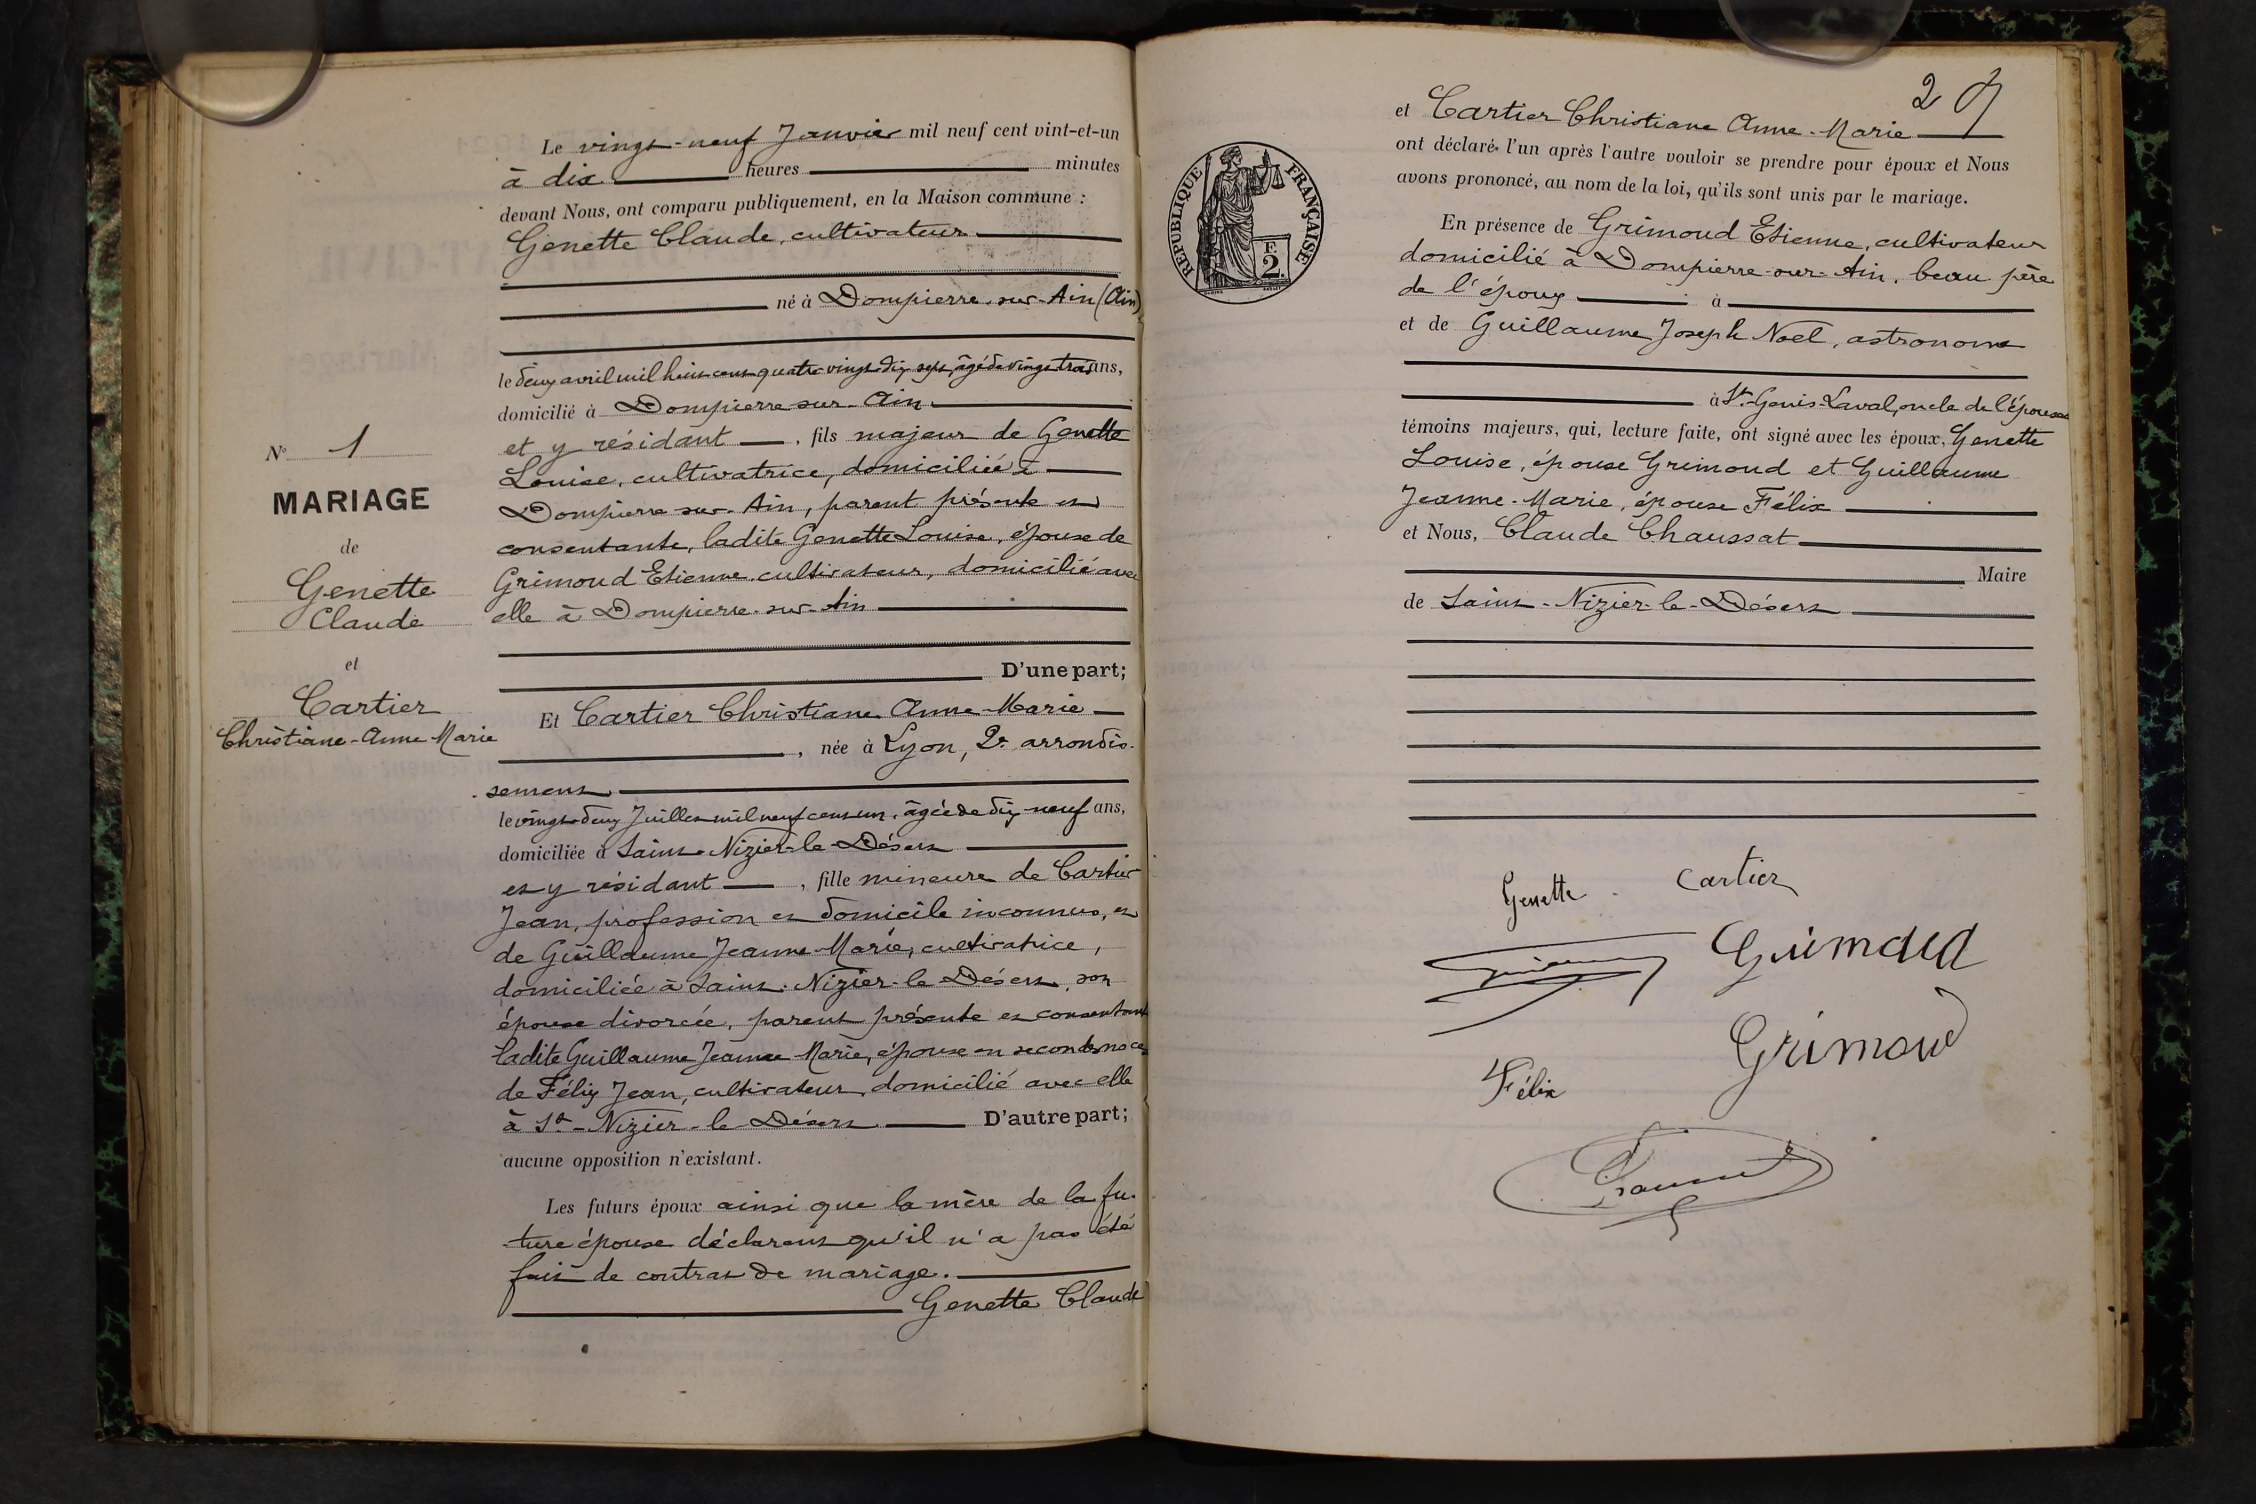 Le vingt-neuf Janvier mil neuf cent vint-et-un
à dix heures minutes
devant Nous, ont comparu publiquement, en la Maison commune :
Genette Claude, cultivateur
né à Dompierre-sur-Ain (Ain)
le deux avril mil huit cent quatre vingt dix sept, âgé de vingt trois ans,
domicilié à Dompierre sur-Ain
et y résidant, fils majeur de Genette
Louise, cultivatrice, domiciliée à
Dompierre-sur-Ain, parent présente et
consentante, ladite Genette Louise, épouse de
Grimoud Etienne cultivateur, domicilié avec
elle à Dompierre-sur-Ain
D'une part;
N° 1
MARIAGE
de
Genette
Claude
et
Cartier
Christiane-Anne Marie
Et Cartier Christiane Anne-Marie
, née à Lyon, 2e arrondis-
sement
le vingt-deux Juillet mil neuf cent un, âgée de dix-neuf ans,
domiciliée à Saint-Nizier-le-Désert
et y résidant, fille mineure de Cartier
Jean, profession et domicile inconnus, et
de Guillaume Jeanne-Marie, cultivatrice,
domiciliée à Saint-Nizier-le Désert, son
épouse divorcée, parent présente et consentante
ladite Guillaume Jeanne Marie, épouse en secondes noces
de Félix Jean, cultivateur, domicilié avec elle
à St-Nizier-le-Désert D'autre part;
aucune opposition n'existant.
Les futurs époux ainsi que la mère de la fu-
ture épouse déclarent qu'il n'a pas été
fait de contrat de mariage.
Genette Claude
2
et Cartier Christiane Anne-Marie
ont déclaré l'un après l'autre vouloir se prendre pour époux et Nous
avons prononcé, au nom de la loi, qu'ils sont unis par le mariage.
RÉPUBLIQUE FRANÇAISE
F.
2
En présence de Grimoud Etienne, cultivateur
domicilié à Dompierre-sur-Ain, beau père
de l'époux à
et de Guillaume Joseph Noël, astronome
à St-Genis-Laval, oncle de l'épouse
témoins majeurs, qui, lecture faite, ont signé avec les époux, Genette
Louise, épouse Grimoud et Guillaume
Jeanne-Marie, épouse Félix
et Nous, Claude Chaussat
Maire
de Saint-Nizier-le-Désert
Genette Cartier
Grimoud
Grimoud
Félix